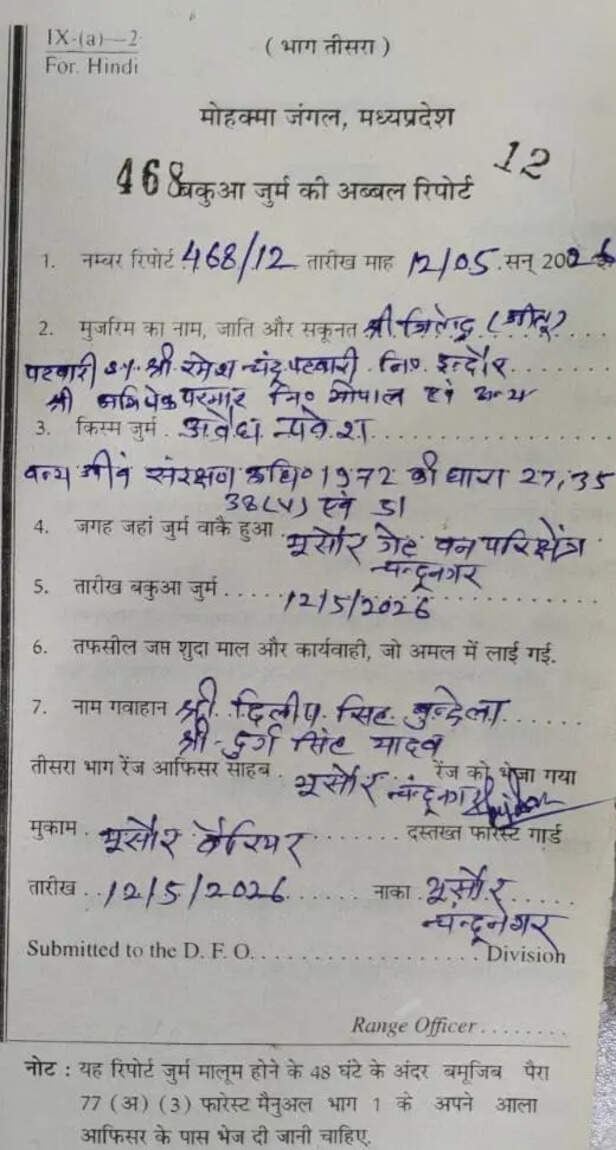 IX-(a)—2
For. Hindi
( भाग तीसरा )
मोहक्मा जंगल, मध्यप्रदेश
12
468 बकुआ जुर्म की अब्बल रिपोर्ट
1. नम्बर रिपोर्ट 468/12 तारीख माह 12/05 सन् 2026
2. मुजरिम का नाम, जाति और सकूनत श्री जितेन्द्र (जीतू)
पटवारी S/० श्री रमेश चंद्र पटवारी नि० इन्दौर
श्री अभिषेक परमार नि० भोपाल एवं अन्य
3. किस्म जुर्म अवैध प्रवेश
वन्य जीव संरक्षण अधि० 1972 की धारा 27, 35
38(V) एवं 51
4. जगह जहां जुर्म वाकै हुआ भूसौर गेट वन परिक्षेत्र
चन्द्रनगर
5. तारीख बकुआ जुर्म 12/5/2026
6. तफसील जप्त शुदा माल और कार्यवाही, जो अमल में लाई गई.
7. नाम गवाहान श्री दिलीप सिंह बुन्देला
श्री दुर्ग सिंह यादव
तीसरा भाग रेंज आफिसर साहब भूसौर चन्द्रनगर रेंज को भेजा गया
मुकाम भूसौर बैरियर दस्तख्त फारेस्ट गार्ड
तारीख 12/5/2026 नाका भूसौर
चन्द्रनगर
Submitted to the D. F. O. Division
Range Officer
नोट : यह रिपोर्ट जुर्म मालूम होने के 48 घंटे के अंदर बमूजिब पैरा
77 (अ) (3) फारेस्ट मैनुअल भाग 1 के अपने आला
आफिसर के पास भेज दी जानी चाहिए.